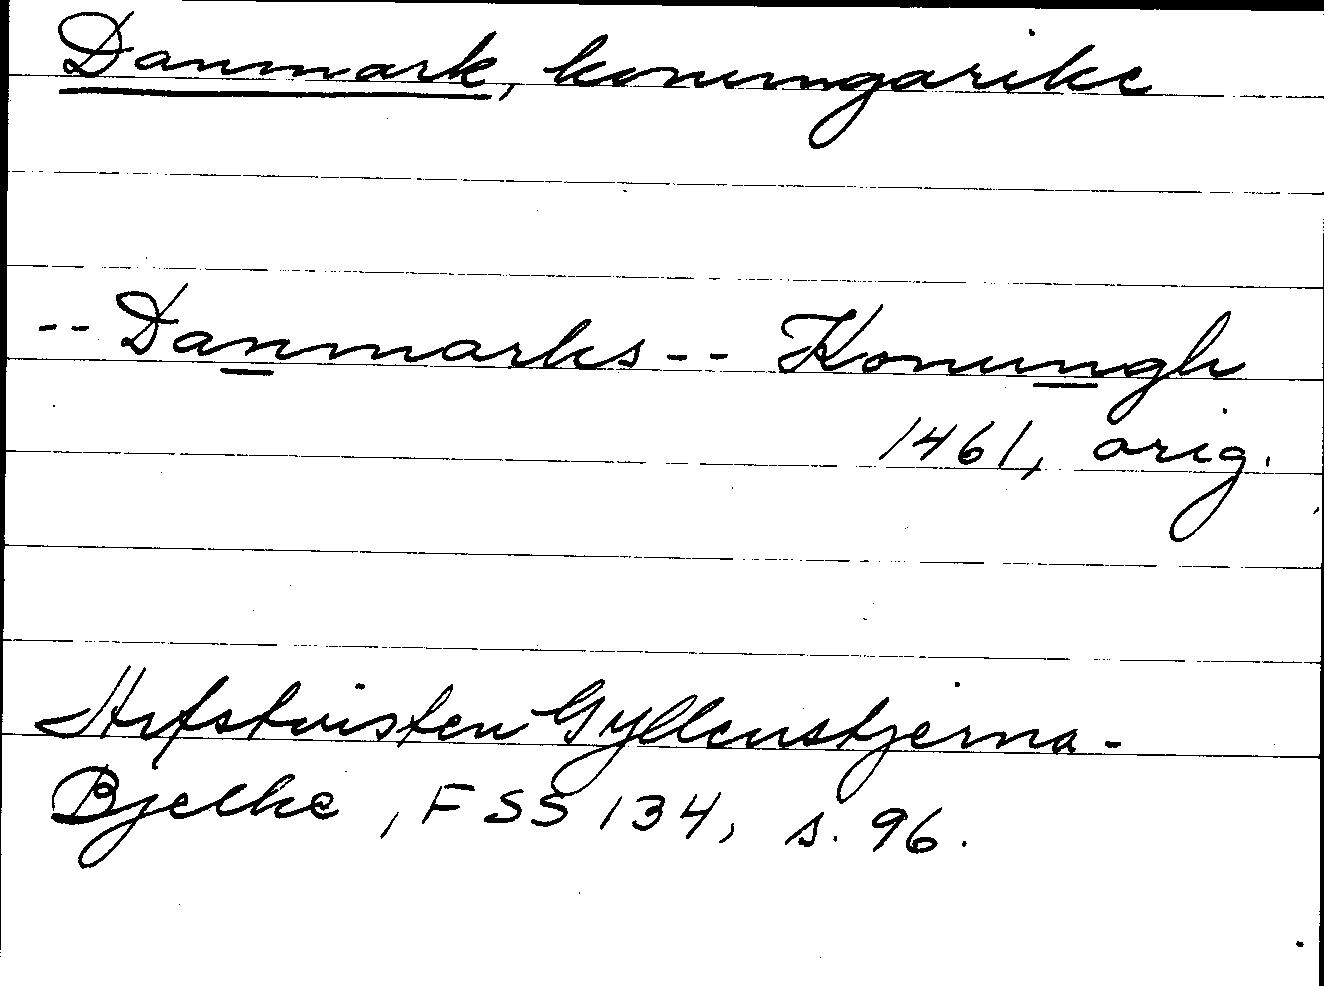 Danmark, konungarike
-- Danmarks -- Konungh
1461, orig.
Arfstvisten Gyllenstjerna-
Bjelke, FSS 134, s. 96.